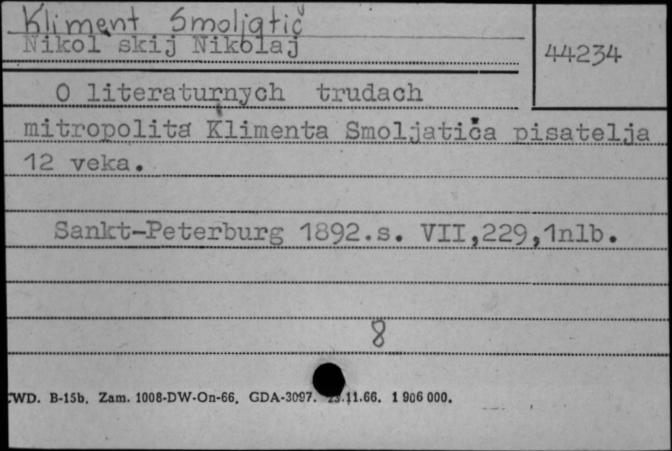 Kliment Smoljatič
Nikol'skij Nikolaj
44234
O literaturnych trudach
mitropolita Klimenta Smoljatiča pisatelja
12 veka.
Sankt-Peterburg 1892.s. VII,229,1nlb.
8
WD. B-15b. Zam. 1008-DW-On-66. GDA-3097. 23.11.66. 1 906 000.